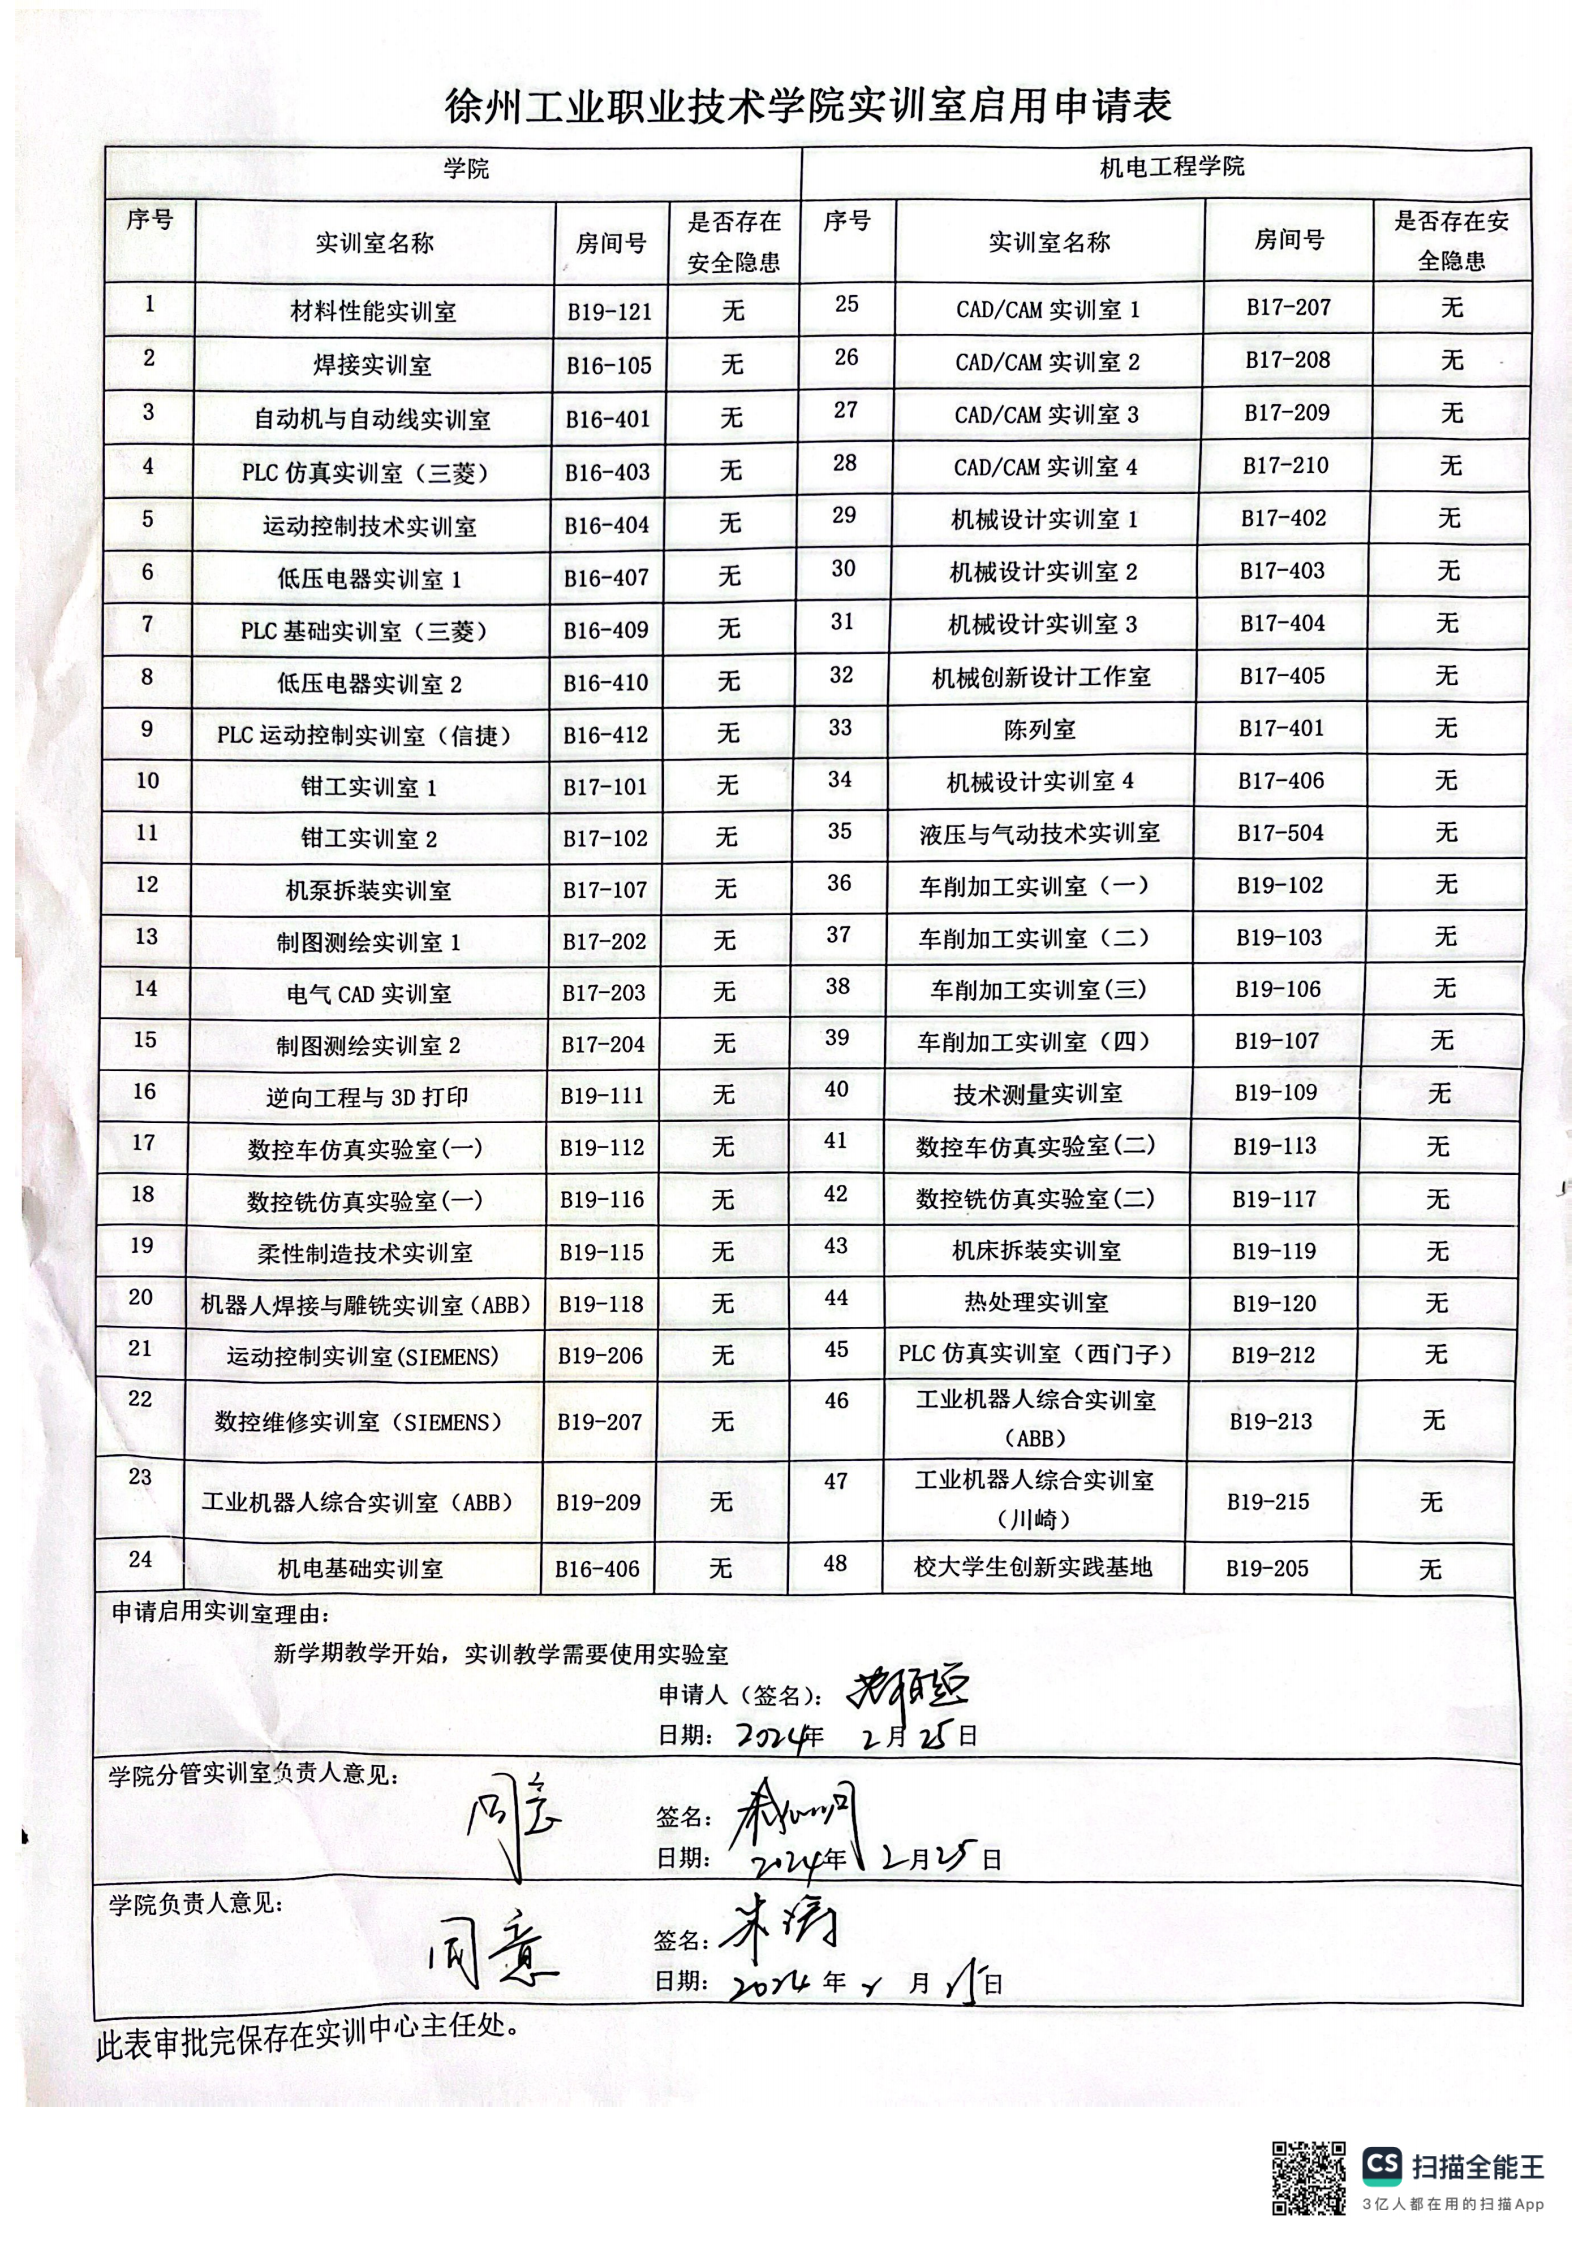 徐州工业职业技术学院实训室启用申请表
学院 机电工程学院
序号 实训室名称 房间号 是否存在安全隐患 序号 实训室名称 房间号 是否存在安全隐患
1 材料性能实训室 B19-121 无 25 CAD/CAM 实训室 1 B17-207 无
2 焊接实训室 B16-105 无 26 CAD/CAM 实训室 2 B17-208 无
3 自动机与自动线实训室 B16-401 无 27 CAD/CAM 实训室 3 B17-209 无
4 PLC 仿真实训室（三菱） B16-403 无 28 CAD/CAM 实训室 4 B17-210 无
5 运动控制技术实训室 B16-404 无 29 机械设计实训室 1 B17-402 无
6 低压电器实训室 1 B16-407 无 30 机械设计实训室 2 B17-403 无
7 PLC 基础实训室（三菱） B16-409 无 31 机械设计实训室 3 B17-404 无
8 低压电器实训室 2 B16-410 无 32 机械创新设计工作室 B17-405 无
9 PLC 运动控制实训室（信捷） B16-412 无 33 陈列室 B17-401 无
10 钳工实训室 1 B17-101 无 34 机械设计实训室 4 B17-406 无
11 钳工实训室 2 B17-102 无 35 液压与气动技术实训室 B17-504 无
12 机泵拆装实训室 B17-107 无 36 车削加工实训室（一） B19-102 无
13 制图测绘实训室 1 B17-202 无 37 车削加工实训室（二） B19-103 无
14 电气 CAD 实训室 B17-203 无 38 车削加工实训室(三) B19-106 无
15 制图测绘实训室 2 B17-204 无 39 车削加工实训室（四） B19-107 无
16 逆向工程与 3D 打印 B19-111 无 40 技术测量实训室 B19-109 无
17 数控车仿真实验室(一) B19-112 无 41 数控车仿真实验室(二) B19-113 无
18 数控铣仿真实验室(一) B19-116 无 42 数控铣仿真实验室(二) B19-117 无
19 柔性制造技术实训室 B19-115 无 43 机床拆装实训室 B19-119 无
20 机器人焊接与雕铣实训室(ABB) B19-118 无 44 热处理实训室 B19-120 无
21 运动控制实训室(SIEMENS) B19-206 无 45 PLC 仿真实训室（西门子） B19-212 无
22 数控维修实训室（SIEMENS） B19-207 无 46 工业机器人综合实训室（ABB） B19-213 无
23 工业机器人综合实训室（ABB） B19-209 无 47 工业机器人综合实训室（川崎） B19-215 无
24 机电基础实训室 B16-406 无 48 校大学生创新实践基地 B19-205 无
申请启用实训室理由：
新学期教学开始，实训教学需要使用实验室
申请人（签名）：
日期： 2024年 2月 25日
学院分管实训室负责人意见：
同意
签名：
日期： 2024年 2月25日
学院负责人意见：
同意
签名：朱涛
日期： 2024 年 2 月 25日
此表审批完保存在实训中心主任处。
CS 扫描全能王
3亿人都在用的扫描App